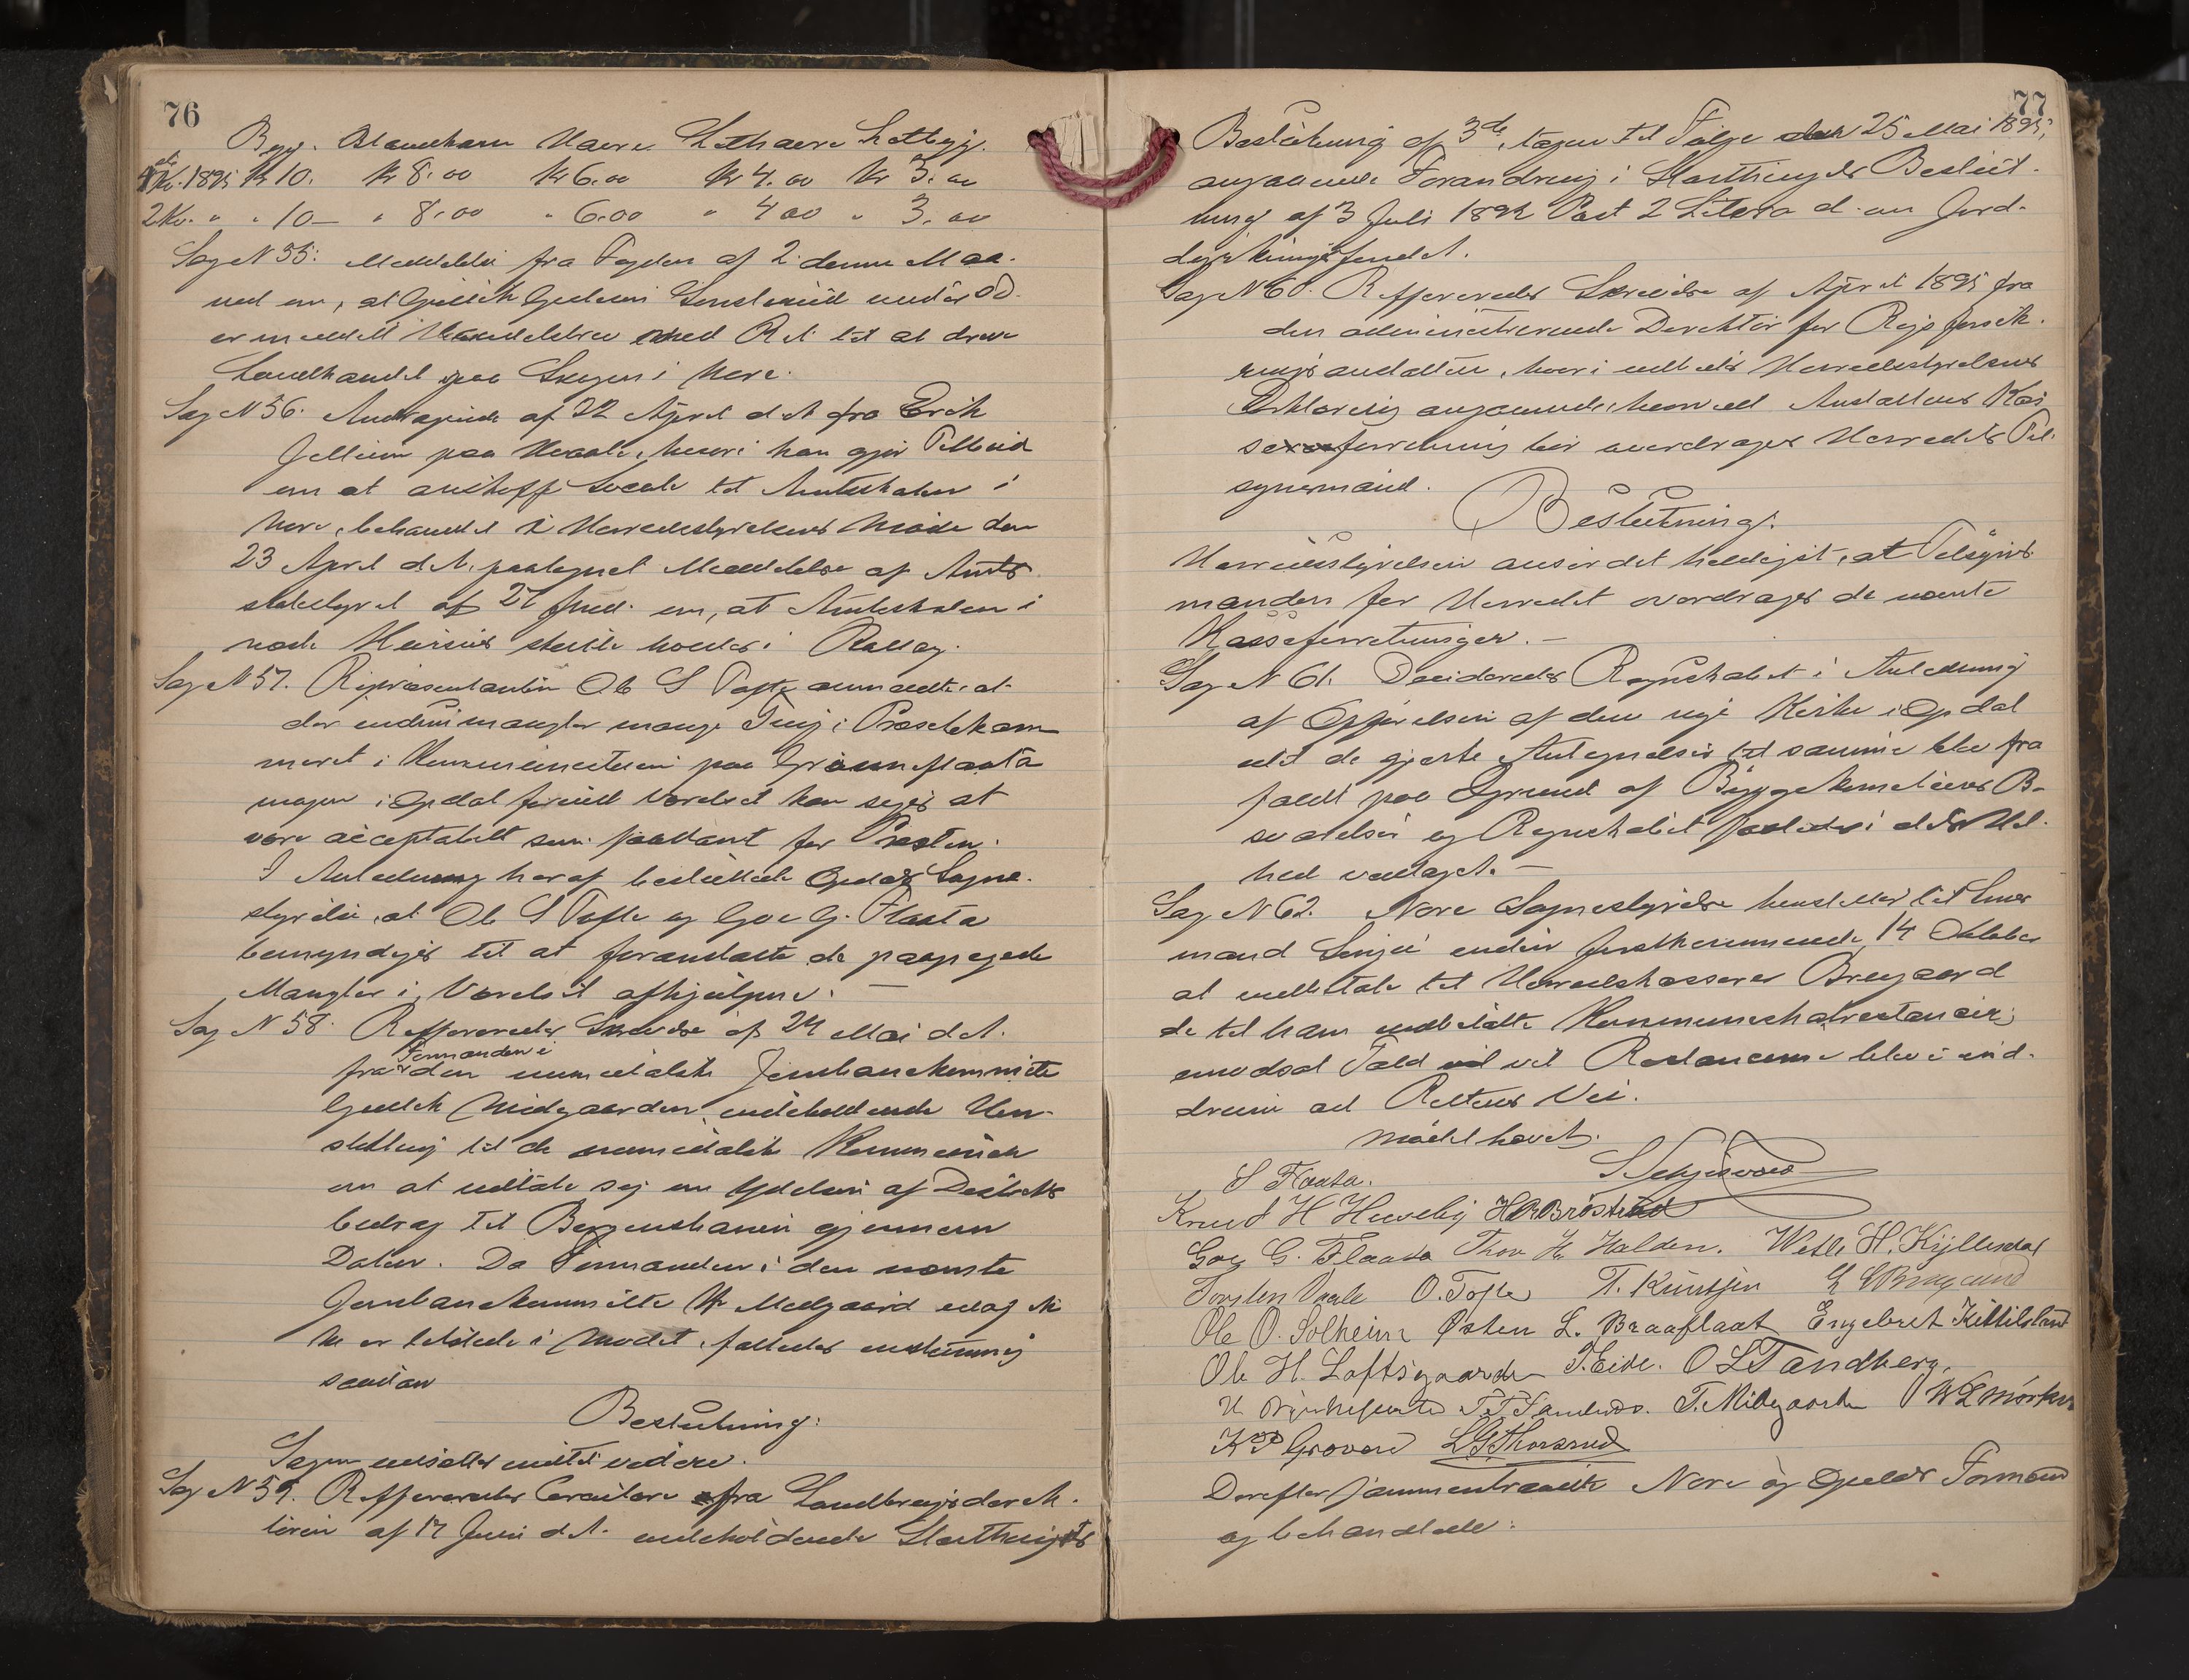 76
Byg. Blandkorn Havre Lethavre Letbyg.
1ste Kv. 1895 Kr 10. Kr 8.00 Kr 6.00 Kr 4.00 Kr 3.00
2 Kv. " " 10 — " 8.00 " 6.00 " 4.00 " 3.00
Sag N 55: Meddelelse fra Fogden af 2 denne Maa-
ned om, at Gulik
er meddelt Handelsbrev med Ret til at drive
Landhandel paa Skogen i Nore.
Sag N 56. Andragende af 22 April d. A. fra Erik
Jellum paa Veraale, hvori han gjør Tilbud
om at anskaffe Locale til Amtsskolen i
Nore, behandlet i Herredsstyrelsens Møde den
23 April d. A. paategnet Meddelelse af Amts
skolestyret af 27 f. om, at Amtsskolen i
næste Kursus skulde holdes i Rollag.
Sag N 57. Repræsentanten Ole S Tofte anmeldte, at
der endnu mangler mange Ting i Præstekam-
meret i Kommunelocalet paa Grønneflaata
i Opdal forend Værelset kan siges at
være acceptabelt som saadant for Præsten.
I Anledning heraf besluttede Opdals Sogne-
styrelse, at Ole S Tofte og Goe G. Flaata
bemyndiges til at foranstalte de paapegede
Mangler i Værelset afhjulpne. —
Sag N 58. Reffereredes Skrivelse af 24 Mai d. A.
Formanden i
fra den numedalske Jernbanekommite
Gullik Midgaarden indeholdende Hen-
stilling til de numedalske Kommuner
om at udtale sig om Ydelsen af Distrikts
bidrag til Bergensbanen gjennem
Dalen. Da Formanden i den nævnte
Jernbanekommitte Hr Midgaard idag ik-
ke er tilstede i Mødet, fattedes enstemmig
saadan
Beslutning:
Sagen udsættes indtil videre.
Sag N 59. Reffereredes Circulære fra Landbrugsdirek-
tøren af 17 Juni d. A. indeholdende Storthingets
77
Beslutning af 3de, tagen til Følge den 25 Mai 1895,
angaaende Forandring i Storthingets Beslut-
ning af 3 Juli 1894 Post 2 Litera d. om Jord-
dyrkningsfondet.
Sag N 60. Reffereredes Skrivelse af April 1895 fra
den administrerende Direktør for Rigsforsik-
ringsanstalten, hvori udbedes Herredsstyrelsens
Erklæring angaaende, hvorvidt Anstaltens Kas
seforretning bør overdrages Herredets Til-
synsmand.
Beslutning.
Herredsstyrelsen anser det heldigst, at Tilsyns-
manden for Herredet overdrages de nævnte
Kasseforretninger. —
Sag N 61. Deciderede Regnskabet i Anledning
af Opførelsen af den nye Kirke i Opdal
idet de gjorte Antegnelser til samme blev fra
faldt paa Grund af Byggekomiteens Be-
svarelser og Regnskabet saaledes i dets Hel-
hed vedtaget. —
Sag N 62. Nore Sognestyrelse henstiller til Lens
mand inden førstkommende 14 Oktober
at indbetale til Herredskasserer Bregaard
de til ham indbetalte Kommuneskatrestancer,
i modsat Fald vil Restancerne blive ind-
drevne ad Rettens Vei.
Mødet hævet.
S Flaata.
Knud H Huseby
Goe G. Flaata Thor H. Halden. Wetle H. Kjillesdal
Torsten Vaale O. Tofte T. Knutsen
Ole O. Solheim Østen L. Braaflaat Engebret Kittilsland
Ole H. Loftsgaarden T. Eide. O L Tandberg.
T. Midgaarden W L Mørken
K P Grovard L G Thorsrud
Derefter sammentraadte Nore og Opdals Formænd
og behandlede: